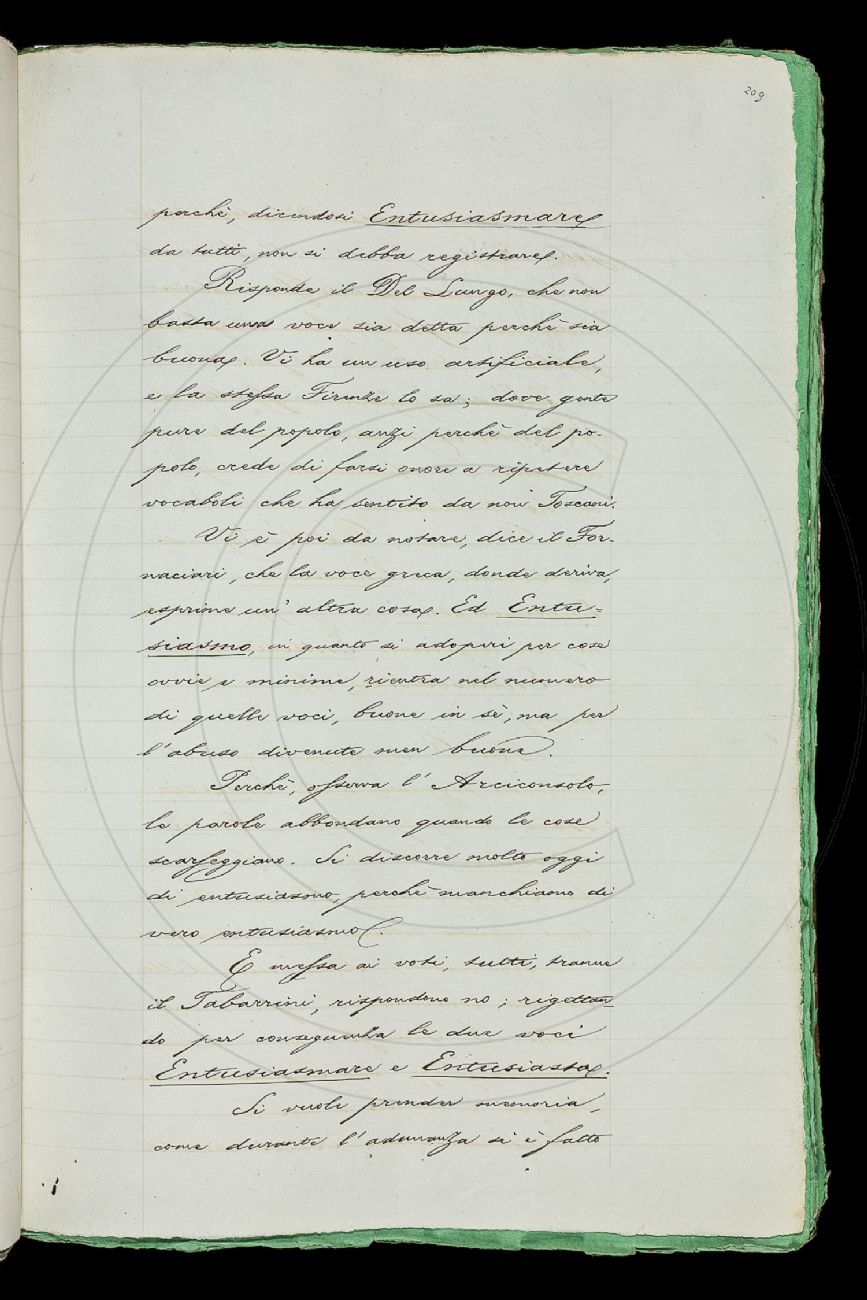 209
perchè, dicendosi Entusiasmare
da tutti, non si debba registrare.
Risponde il Del Lungo, che non
basta una voce sia detta perchè sia
buona. Vi ha un uso artificiale,
e la stessa Firenze lo sa; dove gente
pure del popolo, anzi perchè del po-
polo, crede di farsi onore a ripetere
vocaboli che ha sentito da non Toscani.
Vi è poi da notare, dice il For-
naciari, che la voce greca, donde deriva,
esprime un' altra cosa. Ed Entu-
siasmo, in quanto si adoperi per cose
ovvie e minime, rientra nel numero
di quelle voci, buone in sè, ma per
l'abuso divenute men buone.
Perchè, osserva l' Arciconsolo,
le parole abbondano quando le cose
scarseggiano. Si discorre molto oggi
di entusiasmo, perchè manchiamo di
vero entusiasmo.
E messa ai voti, tutti, tranne
il Tabarrini, rispondono no; rigettan-
do per conseguenza le due voci
Entusiasmare e Entusiasta.
Si vuole prender memoria,
come durante l'adunanza si è fatto